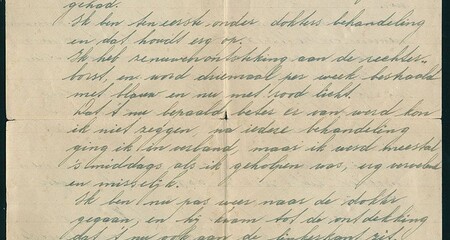 gehad.
Ik ben ten eerste onder dokters behandeling
en dat houdt erg op.
Ik heb zenuwontstekking aan de rechter-
borst, en word driemaal per week bestraald
met blauw en nu met rood licht.
Dat 't nu bepaald beter er van werd kon
ik niet zeggen, na iedere behandeling
ging ik in verband, maar ik werd meestal
's middags als ik geholpen was, erg
en misselijk.
Ik ben nu pas weer naar de dokter
gegaan, en hij kwam tot de ontdekking
dat 't nu ook aan de linkerkant zit